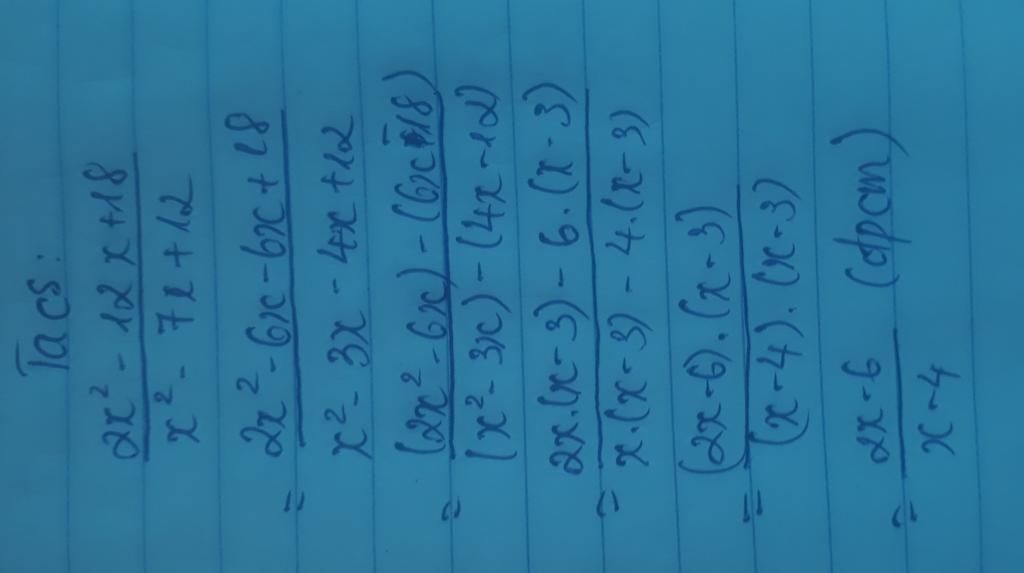 Ta có:
2x² - 12x + 18
x² - 7x + 12
= 2x² - 6x - 6x + 18
x² - 3x - 4x + 12
= (2x² - 6x) - (6x - 18)
(x² - 3x) - (4x - 12)
= 2x.(x - 3) - 6.(x - 3)
x.(x - 3) - 4.(x - 3)
= (2x - 6).(x - 3)
(x - 4).(x - 3)
= 2x - 6 (đpcm)
x - 4